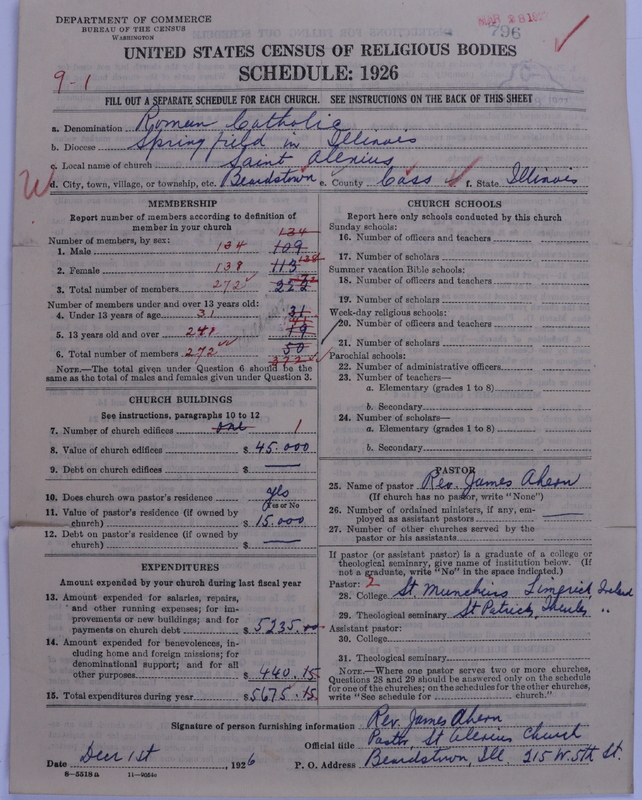 DEPARTMENT OF COMMERCE
BUREAU OF THE CENSUS
WASHINGTON
MAR 28 192
796
UNITED STATES CENSUS OF RELIGIOUS BODIES
SCHEDULE: 1926
9-1
FILL OUT A SEPARATE SCHEDULE FOR EACH CHURCH. SEE INSTRUCTIONS ON THE BACK OF THIS SHEET
a. Denomination Roman Catholic
b. Diocese Springfield in Illinois
c. Local name of church Saint Alexius
d. City, town, village, or township, etc. Beardstown e. County Cass f. State Illinois
MEMBERSHIP
Report number of members according to definition of
member in your church
Number of members, by sex: 134
1. Male 134 109
2. Female 138 113 138
3. Total number of members 272 222
Number of members under and over 13 years old:
4. Under 13 years of age 31 31
5. 13 years old and over 241 19
6. Total number of members 272 50
272
NOTE.—The total given under Question 6 should be the
same as the total of males and females given under Question 3.
CHURCH BUILDINGS
See instructions, paragraphs 10 to 12
7. Number of church edifices one 1
8. Value of church edifices $ 45.000
9. Debt on church edifices $ —
10. Does church own pastor's residence yes
Yes or No
11. Value of pastor's residence (if owned by
church) $ 15.000
12. Debt on pastor's residence (if owned by
church) $ —
EXPENDITURES
Amount expended by your church during last fiscal year
13. Amount expended for salaries, repairs,
and other running expenses; for im-
provements or new buildings; and for
payments on church debt $ 5235.00
14. Amount expended for benevolences, in-
cluding home and foreign missions; for
denominational support; and for all
other purposes $ 440.15
15. Total expenditures during year $ 5675.15
CHURCH SCHOOLS
Report here only schools conducted by this church
Sunday schools:
16. Number of officers and teachers
17. Number of scholars
Summer vacation Bible schools:
18. Number of officers and teachers
19. Number of scholars
Week-day religious schools:
20. Number of officers and teachers
21. Number of scholars
Parochial schools:
22. Number of administrative officers
23. Number of teachers—
a. Elementary (grades 1 to 8)
b. Secondary
24. Number of scholars—
a. Elementary (grades 1 to 8)
b. Secondary
PASTOR
25. Name of pastor Rev. James Ahern
(If church has no pastor, write "None")
26. Number of ordained ministers, if any, em-
ployed as assistant pastors —
27. Number of other churches served by the
pastor or his assistants
If pastor (or assistant pastor) is a graduate of a college or
theological seminary, give name of institution below. (If
not a graduate, write "No" in the space indicated.)
Pastor: 2
28. College St. Munchins Limerick Ireland
29. Theological seminary St Patricks, Thurles "
Assistant pastor:
30. College
31. Theological seminary
NOTE.—Where one pastor serves two or more churches,
Questions 28 and 29 should be answered only on the schedule
for one of the churches; on the schedules for the other churches,
write "See schedule for church."
Signature of person furnishing information Rev. James Ahern
Official title Pastor, St Alexius Church
Date Decr 1st, 1926 P. O. Address Beardstown, Ill, 215 W. 5th St.
8—5518a 11—9054c